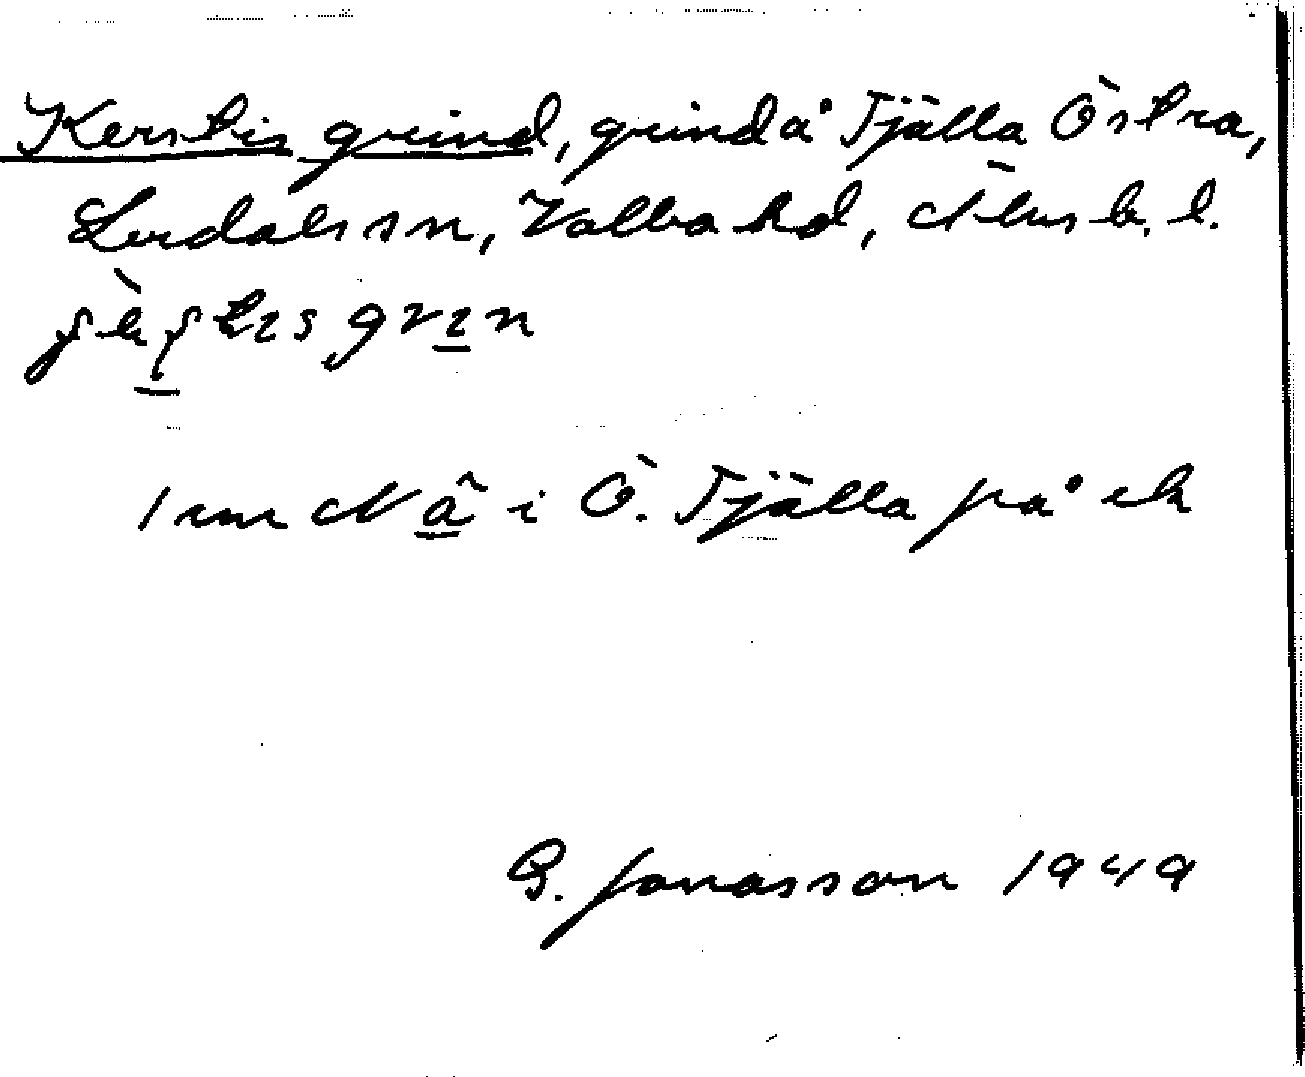 Kerstis grind, grind å Fjälla Östra,
Lerdals sn, Valbo hd, Älvsb. l.
1 mm N ä i Ö. Fjälla på ek
G. Jonasson 1949